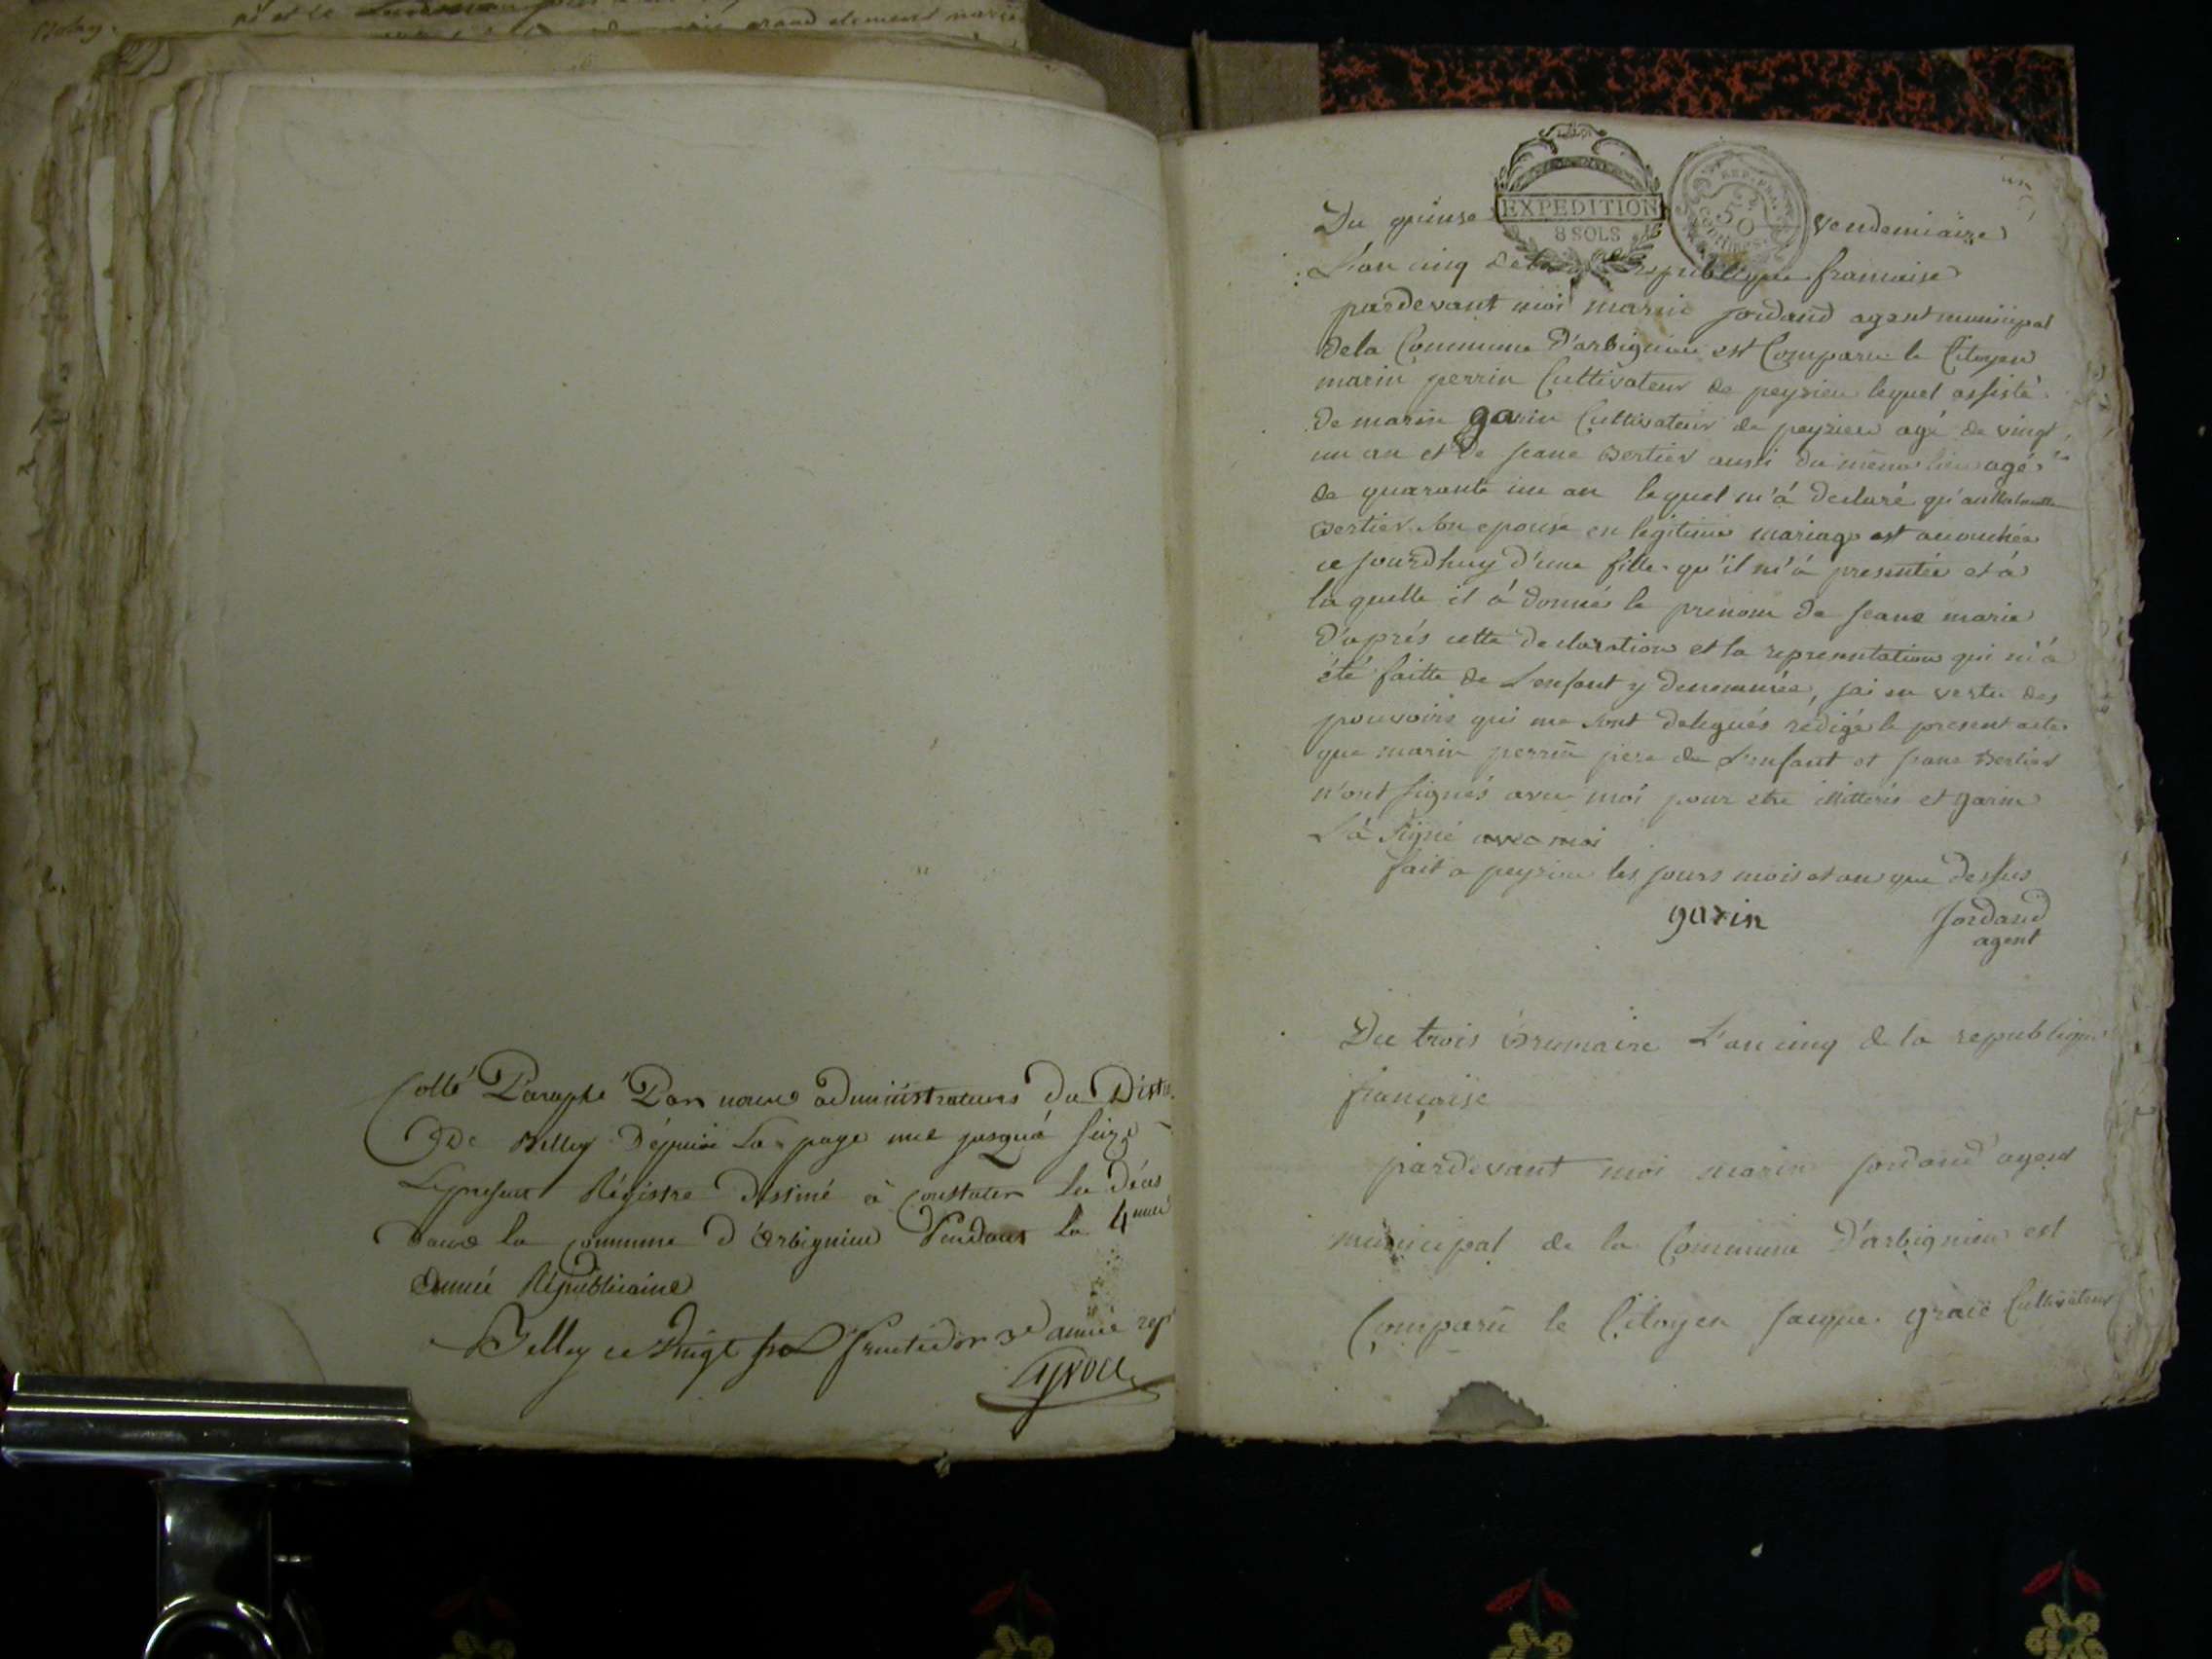 Cotté Paraphé Par nous administrateurs du Distr.
De Belley Dépuis La page une jusqu'á Seize
Le présent Régistre destiné à Constater les Décès
dans la Commune d'Arbignieu Pendant la 4me
année Républicaine
Belley ce Vingt fructidor 3e année rep
EXPEDITION
8 SOLS
REP. FRA.
50
CENTIMES
Du quinse vendemiaire
L'an cinq de la republique francaise
pardevant moi marin jordand agent municipal
dela Commune d'arbignieu est Comparu le Citoyen
marin perrin Cultivateur de peyrieu lequel assisté
de marin garin Cultivateur de peyrieu agé de vingt
un an et de jeane Bertier aussi du même lieu agée
de quarante un an lequel m'á declaré qu'
Bertier son epouse en legitime mariage est acouchée
ce jourdhuy d'une fille qu'il m'á presentée et á
la quelle il á donnés le prenom de jeane marie
D'aprés cette declaration et la representation qui m'á
été faitte de L'enfant y denommée, jai en vertu des
pouvoirs qui me sont delegués rédigé le present acte
que marin perrin pere de L'enfant et jeane Bertier
n'ont signés avec moi pour etre illitterés et garin
L'á signé avec moi
fait a peyrieu les jours mois et an que dessus
garin jordand
agent
Du trois Brumaire L'an cinq de la republique
française
pardevant moi marin jordand agent
municipal de la Commune D'arbignieu est
Comparu le Citoyen jacque graië Cultivateur